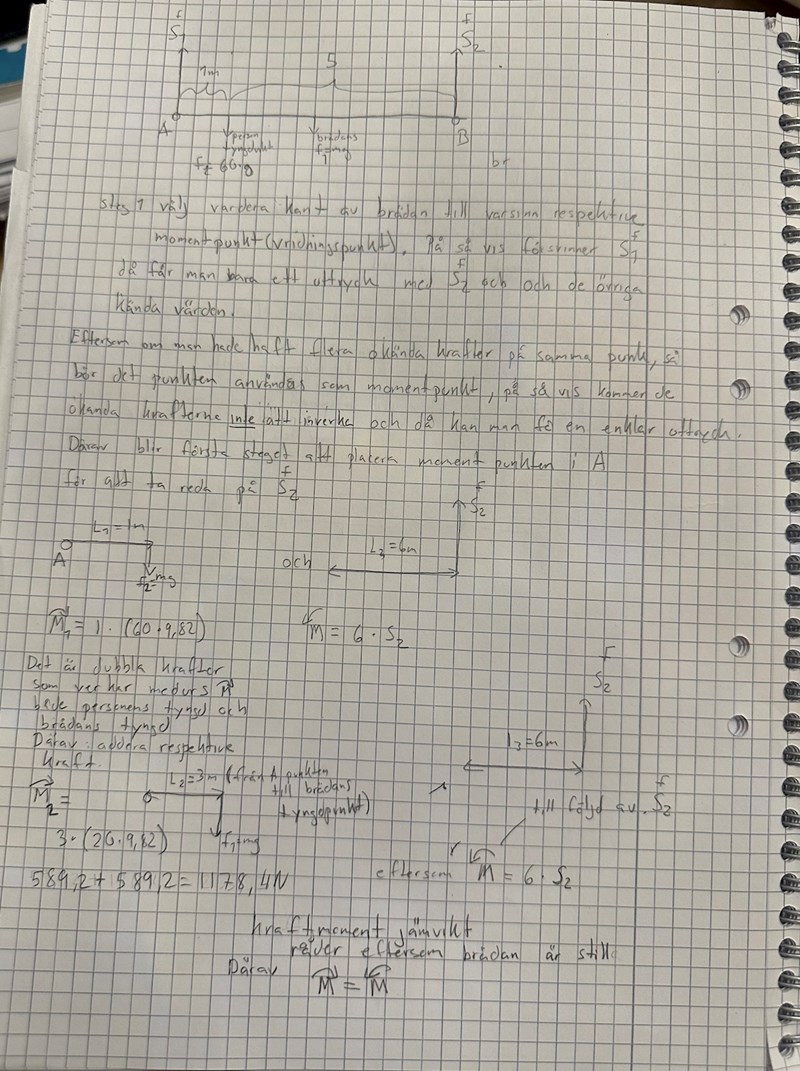 f
S₁
f
S₂
1m
5
A
B
person
tyngdpunkt
f₂ 60·g
brädans
f₁=mg
br
Steg 1 välj vardera kant av brädan till varsinn respektive
momentpunkt (vridningspunkt). På så vis försvinner S₁ f
då får man bara ett uttryck med S₂ f och och de övriga
kända värden.
Eftersom om man hade haft flera okända krafter på samma punkt, så
bör det punkten användas som momentpunkt, på så vis kommer de
okända krafterna inte att inverka och då kan man få en enklar uttryck.
Därav blir första steget att placera moment punkten i A
för att ta reda på S₂ f
L₁=1m
A
f₂=mg
och
L₃=6m
f
S₂
M₁= 1·(60·9,82)
M = 6·S₂
Det är dubbla krafter
som verkar medurs M
både personens tyngd och
brädans tyngd
Därav: addera respektive
kraft.
L₂=3m (från A punkten
till brädans
tyngdpunkt)
f₁=mg
M₂ =
3·(20·9,82)
589,2+589,2=1178,4N
f
S₂
L₃=6m
till följd av S₂ f
eftersom M = 6·S₂
kraftmoment jämvikt
råder eftersom brädan är still
Därav M = M